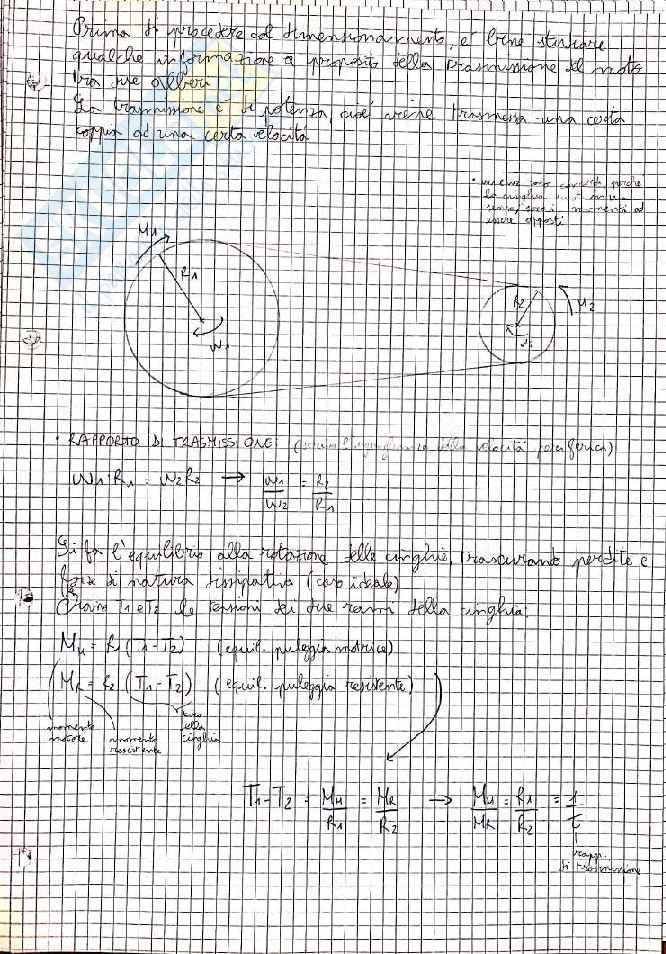 Prima di procedere col dimensionamento, e' bene
qualche informazione a proposito della trasmissione del moto
tra due alberi
La trasmissione e' di potenza, cioé viene trasmessa una certa
coppia ad una certa velocitá
perché
la cinghia
momenti ad
essere opposti
M1
R1
W1
R2
M2
• RAPPORTO DI TRASMISSIONE: ( della velocitá periferica)
W1·R1 = W2R2 → W1/W2 = R2/R1
Si fa l'equilibrio alla rotazione delle cinghie, trascurando perdite e
forze di natura dissipativa (caso ideale)
Siano T1 e T2 le tensioni dei due rami della cinghia.
MM = R1(T1-T2) (equil. puleggia motrice)
(MR = R2(T1-T2) (equil. puleggia resistente)
momento
motore
momento
resistente
della
cinghia
T1-T2 = MM/R1 = MR/R2 → MM/MR = R1/R2 = 1/τ
rapp.
di trasmissione